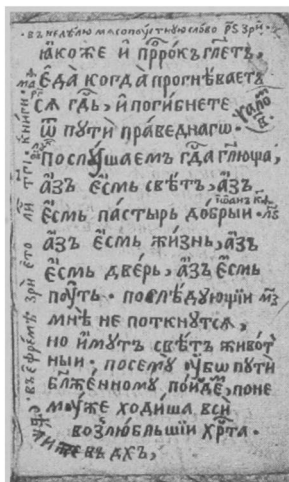 въ недѣлю мясопустную слово рѕ зри
ꙗкоже и пррокъ глетъ,
еда когда прогнѣваетъ
ся гдь, и погибнете
ѿ пути праведнагѡ.
послꙋшаемъ гда глюща,
азъ есмь свѣтъ, азъ
есмь пастырь добрыи
азъ есмь жизнь, азъ
есмь дверь, азъ есмь
поуть. послѣдующїи
мнѣ не поткнутся,
но имꙋтъ свѣтъ живот
ныи. посемꙋ ꙋбѡ пути
блженномꙋ поидем, поне
мꙋже ходиша вси
возлюбльшїи хрта.
въ дхъ,